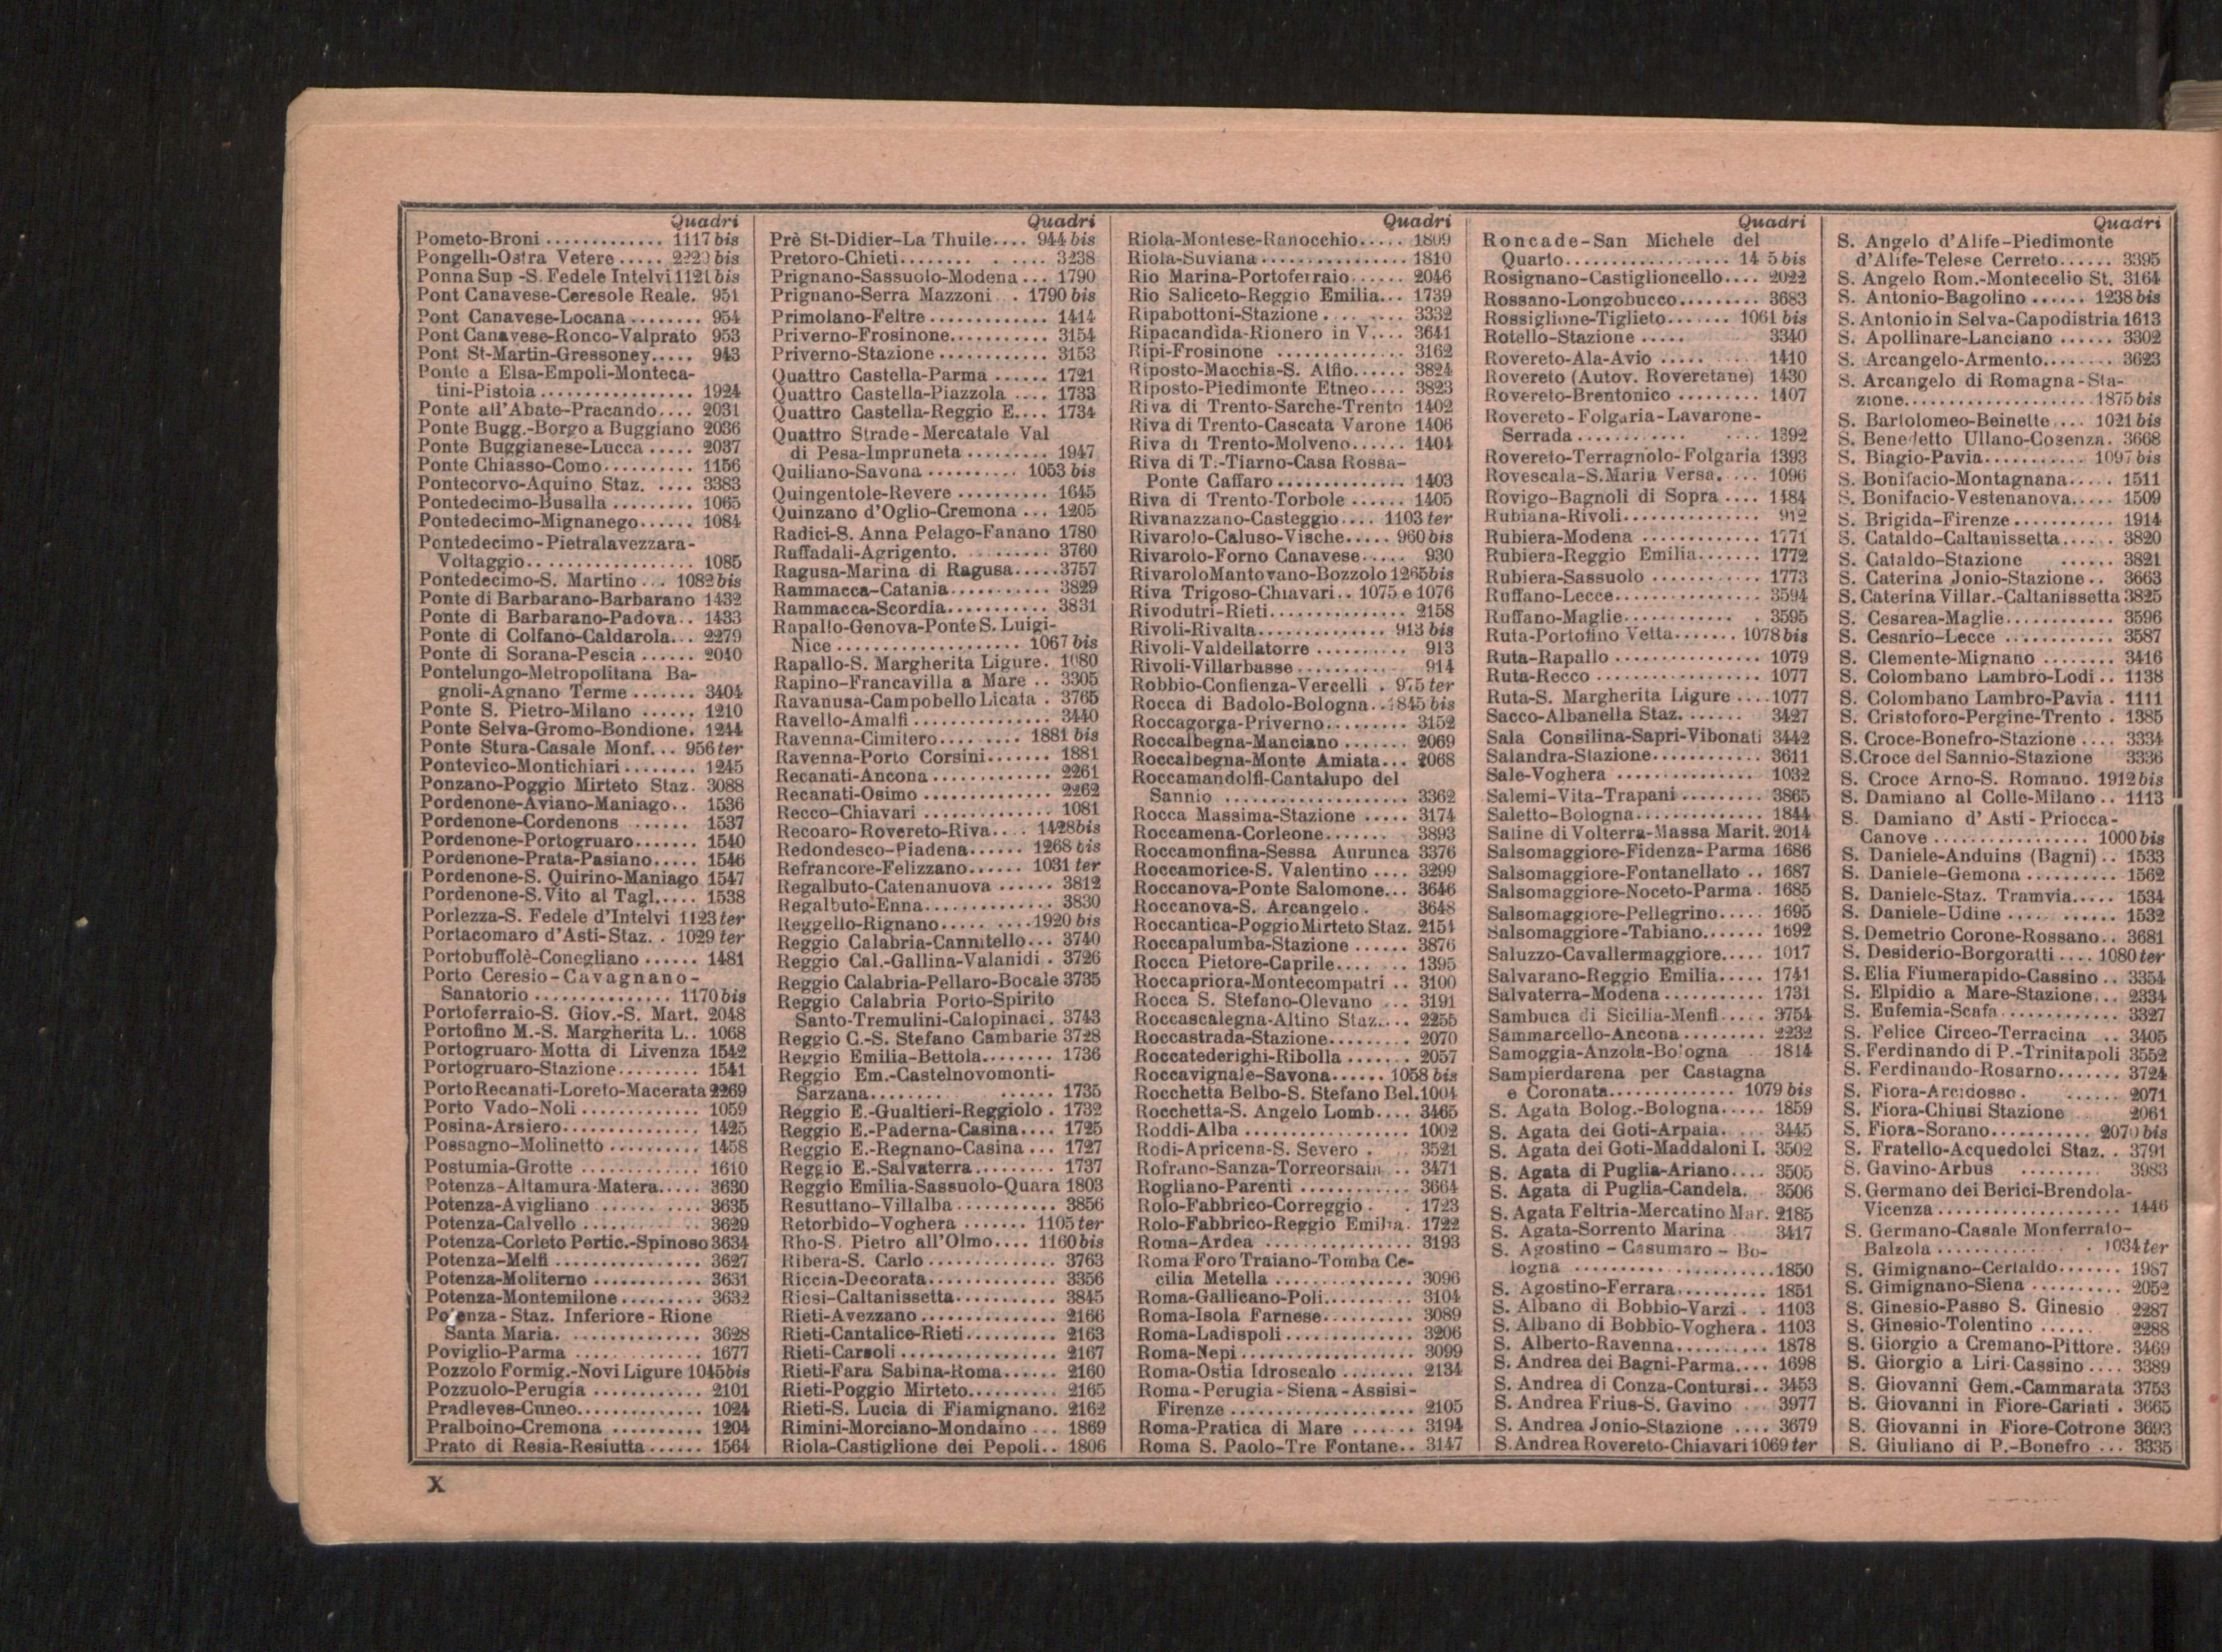 Quadri
Pometo-Broni ............. 1117 bis
Pongelli-Ostra Vetere ..... 2229 bis
Ponna Sup -S. Fedele Intelvi 1121 bis
Pont Canavese-Ceresole Reale. 951
Pont Canavese-Locana ........ 954
Pont Canavese-Ronco-Valprato 953
Pont St-Martin-Gressoney..... 943
Ponte a Elsa-Empoli-Monteca-
tini-Pistoia ................. 1924
Ponte all'Abate-Pracando.... 2031
Ponte Bugg.-Borgo a Buggiano 2036
Ponte Buggianese-Lucca ..... 2037
Ponte Chiasso-Como.......... 1156
Pontecorvo-Aquino Staz. .... 3383
Pontedecimo-Busalla ......... 1065
Pontedecimo-Mignanego...... 1084
Pontedecimo-Pietralavezzara-
Voltaggio.................. 1085
Pontedecimo-S. Martino ... 1082 bis
Ponte di Barbarano-Barbarano 1432
Ponte di Barbarano-Padova.. 1433
Ponte di Colfano-Caldarola... 2279
Ponte di Sorana-Pescia ...... 2040
Pontelungo-Metropolitana Ba-
gnoli-Agnano Terme ....... 3404
Ponte S. Pietro-Milano ...... 1210
Ponte Selva-Gromo-Bondione. 1244
Ponte Stura-Casale Monf... 956 ter
Pontevico-Montichiari ........ 1245
Ponzano-Poggio Mirteto Staz. 3088
Pordenone-Aviano-Maniago.. 1536
Pordenone-Cordenons ...... 1537
Pordenone-Portogruaro....... 1540
Pordenone-Prata-Pasiano..... 1546
Pordenone-S. Quirino-Maniago 1547
Pordenone-S. Vito al Tagl..... 1538
Porlezza-S. Fedele d'Intelvi 1123 ter
Portacomaro d'Asti-Staz. . 1029 ter
Portobuffolè-Conegliano ...... 1481
Porto Ceresio-Cavagnano-
Sanatorio ............... 1170 bis
Portoferraio-S. Giov.-S. Mart. 2048
Portofino M.-S. Margherita L.. 1068
Portogruaro-Motta di Livenza 1542
Portogruaro-Stazione......... 1541
Porto Recanati-Loreto-Macerata 2269
Porto Vado-Noli ............. 1059
Posina-Arsiero............... 1425
Possagno-Molinetto .......... 1458
Postumia-Grotte ............. 1610
Potenza-Altamura-Matera..... 3630
Potenza-Avigliano ........... 3635
Potenza-Calvello ............ 3629
Potenza-Corleto Pertic.-Spinoso 3634
Potenza-Melfi ................ 3627
Potenza-Moliterno ............ 3631
Potenza-Montemilone ......... 3632
Potenza-Staz. Inferiore-Rione
Santa Maria. .............. 3628
Poviglio-Parma .............. 1677
Pozzolo Formig.-Novi Ligure 1045 bis
Pozzuolo-Perugia ............ 2101
Pradleves-Cuneo.............. 1024
Pralboino-Cremona .......... 1204
Prato di Resia-Resiutta ...... 1564
Quadri
Prè St-Didier-La Thuile.... 944 bis
Pretoro-Chieti............. 3238
Prignano-Sassuolo-Modena ... 1790
Prignano-Serra Mazzoni .. 1790 bis
Primolano-Feltre ............. 1414
Priverno-Frosinone........... 3154
Priverno-Stazione ............ 3153
Quattro Castella-Parma ...... 1721
Quattro Castella-Piazzola .... 1733
Quattro Castella-Reggio E.... 1734
Quattro Strade-Mercatale Val
di Pesa-Impruneta ......... 1947
Quiliano-Savona .......... 1053 bis
Quingentole-Revere .......... 1645
Quinzano d'Oglio-Cremona ... 1205
Radici-S. Anna Pelago-Fanano 1780
Raffadali-Agrigento. ........ 3760
Ragusa-Marina di Ragusa.....3757
Rammacca-Catania........... 3829
Rammacca-Scordia........... 3831
Rapallo-Genova-Ponte S. Luigi-
Nice ................... 1067 bis
Rapallo-S. Margherita Ligure. 1080
Rapino-Francavilla a Mare .. 3305
Ravanusa-Campobello Licata . 3765
Ravello-Amalfi ............... 3440
Ravenna-Cimitero......... 1881 bis
Ravenna-Porto Corsini....... 1881
Recanati-Ancona ............. 2261
Recanati-Osimo .............. 2262
Recco-Chiavari .............. 1081
Recoaro-Rovereto-Riva.... 1428 bis
Redondesco-Piadena...... 1268 bis
Refrancore-Felizzano...... 1031 ter
Regalbuto-Catenanuova ...... 3812
Regalbuto-Enna.............. 3830
Reggello-Rignano..... ....1920 bis
Reggio Calabria-Cannitello... 3740
Reggio Cal.-Gallina-Valanidi . 3726
Reggio Calabria-Pellaro-Bocale 3735
Reggio Calabria Porto-Spirito
Santo-Tremulini-Calopinaci. 3743
Reggio C.-S. Stefano Cambarie 3728
Reggio Emilia-Bettola........ 1736
Reggio Em.-Castelnovomonti-
Sarzana........ ...... 1735
Reggio E.-Gualtieri-Reggiolo . 1732
Reggio E.-Paderna-Casina.... 1725
Reggio E.-Regnano-Casina ... 1727
Reggio E.-Salvaterra......... 1737
Reggio Emilia-Sassuolo-Quara 1803
Resuttano-Villalba ........... 3856
Retorbido-Voghera ....... 1105 ter
Rho-S. Pietro all'Olmo.... 1160 bis
Ribera-S. Carlo .............. 3763
Riccia-Decorata.............. 3356
Riesi-Caltanissetta........... 3845
Rieti-Avezzano ............... 2166
Rieti-Cantalice-Rieti.......... 2163
Rieti-Carsoli ................. 2167
Rieti-Fara Sabina-Roma...... 2160
Rieti-Poggio Mirteto.......... 2165
Rieti-S. Lucia di Fiamignano. 2162
Rimini-Morciano-Mondaino ... 1869
Riola-Castiglione dei Pepoli.. 1806
Quadri
Riola-Montese-Ranocchio..... 1809
Riola-Suviana ................ 1810
Rio Marina-Portoferraio...... 2046
Rio Saliceto-Reggio Emilia... 1739
Ripabottoni-Stazione......... 3332
Ripacandida-Rionero in V.... 3641
Ripi-Frosinone .............. 3162
Riposto-Macchia-S. Alfio...... 3824
Riposto-Piedimonte Etneo.... 3823
Riva di Trento-Sarche-Trento 1402
Riva di Trento-Cascata Varone 1406
Riva di Trento-Molveno...... 1404
Riva di T.-Tiarno-Casa Rossa-
Ponte Caffaro .............. 1403
Riva di Trento-Torbole ...... 1405
Rivanazzano-Casteggio.... 1103 ter
Rivarolo-Caluso-Vische..... 960 bis
Rivarolo-Forno Canavese..... 930
Rivarolo Mantovano-Bozzolo 1265 bis
Riva Trigoso-Chiavari.. 1075 e 1076
Rivodutri-Rieti............... 2158
Rivoli-Rivalta.............. 913 bis
Rivoli-Valdellatorre .......... 913
Rivoli-Villarbasse ............ 914
Robbio-Confienza-Vercelli . 975 ter
Rocca di Badolo-Bologna..1845 bis
Roccagorga-Priverno......... 3152
Roccalbegna-Manciano ....... 2069
Roccalbegna-Monte Amiata... 2068
Roccamandolfi-Cantalupo del
Sannio .................... 3362
Rocca Massima-Stazione ..... 3174
Roccamena-Corleone....... 3893
Roccamonfina-Sessa Aurunca 3376
Roccamorice-S. Valentino .... 3299
Roccanova-Ponte Salomone... 3646
Roccanova-S. Arcangelo. 3648
Roccantica-Poggio Mirteto Staz. 2151
Roccapalumba-Stazione ...... 3876
Rocca Pietore-Caprile........ 1395
Roccapriora-Montecompatri .. 3100
Rocca S. Stefano-Olevano ... 3191
Roccascalegna-Altino Staz.... 2255
Roccastrada-Stazione......... 2070
Roccatederighi-Ribolla ....... 2057
Roccavignale-Savona...... 1058 bis
Rocchetta Belbo-S. Stefano Bel.1004
Rocchetta-S. Angelo Lomb.... 3465
Roddi-Alba .................. 1002
Rodi-Apricena-S. Severo . 3521
Rofrano-Sanza-Torreorsaia .. 3471
Rogliano-Parenti ............ 3664
Rolo-Fabbrico-Correggio . . 1723
Rolo-Fabbrico-Reggio Emilia. 1722
Roma-Ardea ................ 3193
Roma Foro Traiano-Tomba Ce-
cilia Metella ............... 3096
Roma-Gallicano-Poli.......... 3104
Roma-Isola Farnese.......... 3089
Roma-Ladispoli .............. 3206
Roma-Nepi .................. 3099
Roma-Ostia Idroscalo ........ 2134
Roma-Perugia-Siena-Assisi-
Firenze .................... 2105
Roma-Pratica di Mare ....... 3194
Roma S. Paolo-Tre Fontane.. 3147
Quadri
Roncade-San Michele del
Quarto.................. 14 5 bis
Rosignano-Castiglioncello.... 2022
Rossano-Longobucco......... 3683
Rossiglione-Tiglieto....... 1061 bis
Rotello-Stazione ..... 3340
Rovereto-Ala-Avio ..... 1410
Rovereto (Autov. Roveretane) 1430
Rovereto-Brentonico ......... 1407
Rovereto-Folgaria-Lavarone-
Serrada ............ .... 1392
Rovereto-Terragnolo-Folgaria 1393
Rovescala-S. Maria Versa..... 1096
Rovigo-Bagnoli di Sopra .... 1484
Rubiana-Rivoli............... 912
Rubiera-Modena ............. 1771
Rubiera-Reggio Emilia....... 1772
Rubiera-Sassuolo ............ 1773
Ruffano-Lecce................ 3594
Ruffano-Maglie.............. . 3595
Ruta-Portofino Vetta....... 1078 bis
Ruta-Rapallo ................ 1079
Ruta-Recco .................. 1077
Ruta-S. Margherita Ligure ....1077
Sacco-Albanella Staz. ...... 3427
Sala Consilina-Sapri-Vibonati 3442
Salandra-Stazione............ 3611
Sale-Voghera ............... 1032
Salemi-Vita-Trapani ......... 3865
Saletto-Bologna.............. 1844
Saline di Volterra-Massa Marit. 2014
Salsomaggiore-Fidenza-Parma 1686
Salsomaggiore-Fontanellato .. 1687
Salsomaggiore-Noceto-Parma . 1685
Salsomaggiore-Pellegrino..... 1695
Salsomaggiore-Tabiano....... 1692
Saluzzo-Cavallermaggiore..... 1017
Salvarano-Reggio Emilia..... 1741
Salvaterra-Modena ........... 1731
Sambuca di Sicilia-Menfi..... 3754
Sammarcello-Ancona ......... 2232
Samoggia-Anzola-Bologna 1814
Sampierdarena per Castagna
e Coronata.............. 1079 bis
S. Agata Bolog.-Bologna..... 1859
S. Agata dei Goti-Arpaia. 3445
S. Agata dei Goti-Maddaloni I. 3502
S. Agata di Puglia-Ariano.... 3505
S. Agata di Puglia-Candela. 3506
S. Agata Feltria-Mercatino Mar. 2185
S. Agata-Sorrento Marina 3417
S. Agostino-Casumaro-Bo-
logna .......................1850
S. Agostino-Ferrara.......... 1851
S. Albano di Bobbio-Varzi . . 1103
S. Albano di Bobbio-Voghera . 1103
S. Alberto-Ravenna.......... 1878
S. Andrea dei Bagni-Parma.... 1698
S. Andrea di Conza-Contursi.. 3453
S. Andrea Frius-S. Gavino ... 3977
S. Andrea Jonio-Stazione .... 3679
S. Andrea Rovereto-Chiavari 1069 ter
Quadri
S. Angelo d'Alife-Piedimonte
d'Alife-Telese Cerreto...... 3395
S. Angelo Rom.-Montecelio St. 3164
S. Antonio-Bagolino ...... 1238 bis
S. Antonio in Selva-Capodistria 1613
S. Apollinare-Lanciano ...... 3302
S. Arcangelo-Armento........ 3623
S. Arcangelo di Romagna-Sta-
zione....................1875 bis
S. Bartolomeo-Beinette.... 1021 bis
S. Benedetto Ullano-Cosenza. 3668
S. Biagio-Pavia........... 1097 bis
S. Bonifacio-Montagnana..... 1511
S. Bonifacio-Vestenanova..... 1509
S. Brigida-Firenze ........... 1914
S. Cataldo-Caltanissetta...... 3820
S. Cataldo-Stazione ...... 3821
S. Caterina Jonio-Stazione .. 3663
S. Caterina Villar.-Caltanissetta 3825
S. Cesarea-Maglie............ 3596
S. Cesario-Lecce ............ 3587
S. Clemente-Mignano ........ 3416
S. Colombano Lambro-Lodi.. 1138
S. Colombano Lambro-Pavia . 1111
S. Cristoforo-Pergine-Trento . 1385
S. Croce-Bonefro-Stazione .... 3334
S. Croce del Sannio-Stazione 3336
S. Croce Arno-S. Romano. 1912 bis
S. Damiano al Colle-Milano .. 1113
S. Damiano d'Asti-Priocca-
Canove ................. 1000 bis
S. Daniele-Anduins (Bagni) .. 1533
S. Daniele-Gemona .......... 1562
S. Daniele-Staz. Tramvia..... 1534
S. Daniele-Udine ..... ...... 1532
S. Demetrio Corone-Rossano.. 3681
S. Desiderio-Borgoratti .... 1080 ter
S. Elia Fiumerapido-Cassino .. 3354
S. Elpidio a Mare-Stazione... 2334
S. Eufemia-Scafa ............ 3327
S. Felice Circeo-Terracina .. 3405
S. Ferdinando di P.-Trinitapoli 3552
S. Ferdinando-Rosarno....... 3724
S. Fiora-Arcidosso. ...... 2071
S. Fiora-Chiusi Stazione 2061
S. Fiora-Sorano........... 2070 bis
S. Fratello-Acquedolci Staz. . 3791
S. Gavino-Arbus ......... 3983
S. Germano dei Berici-Brendola-
Vicenza ................... 1446
S. Germano-Casale Monferrato-
Balzola ............ . 1034 ter
S. Gimignano-Certaldo....... 1987
S. Gimignano-Siena .......... 2052
S. Ginesio-Passo S. Ginesio 2287
S. Ginesio-Tolentino ...... 2288
S. Giorgio a Cremano-Pittore. 3469
S. Giorgio a Liri-Cassino .... 3389
S. Giovanni Gem.-Cammarata 3753
S. Giovanni in Fiore-Cariati . 3665
S. Giovanni in Fiore-Cotrone 3693
S. Giuliano di P.-Bonefro ... 3335
X